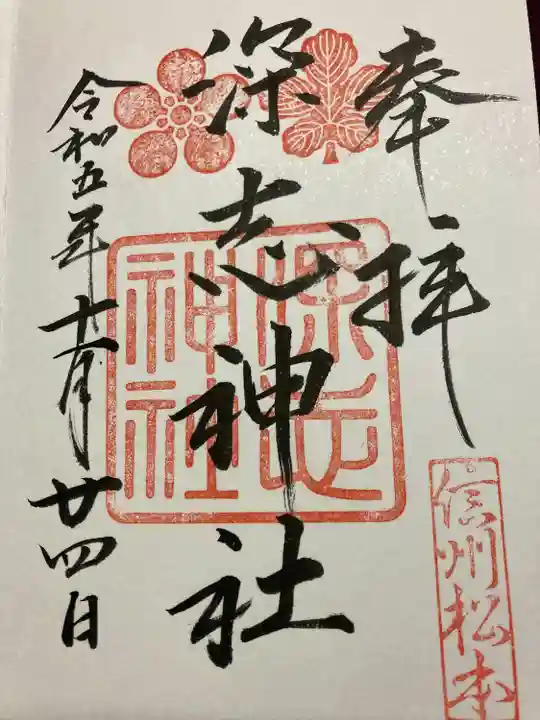 奉拝
深志神社
令和五年十一月廿四日
深志
神社
信州松本